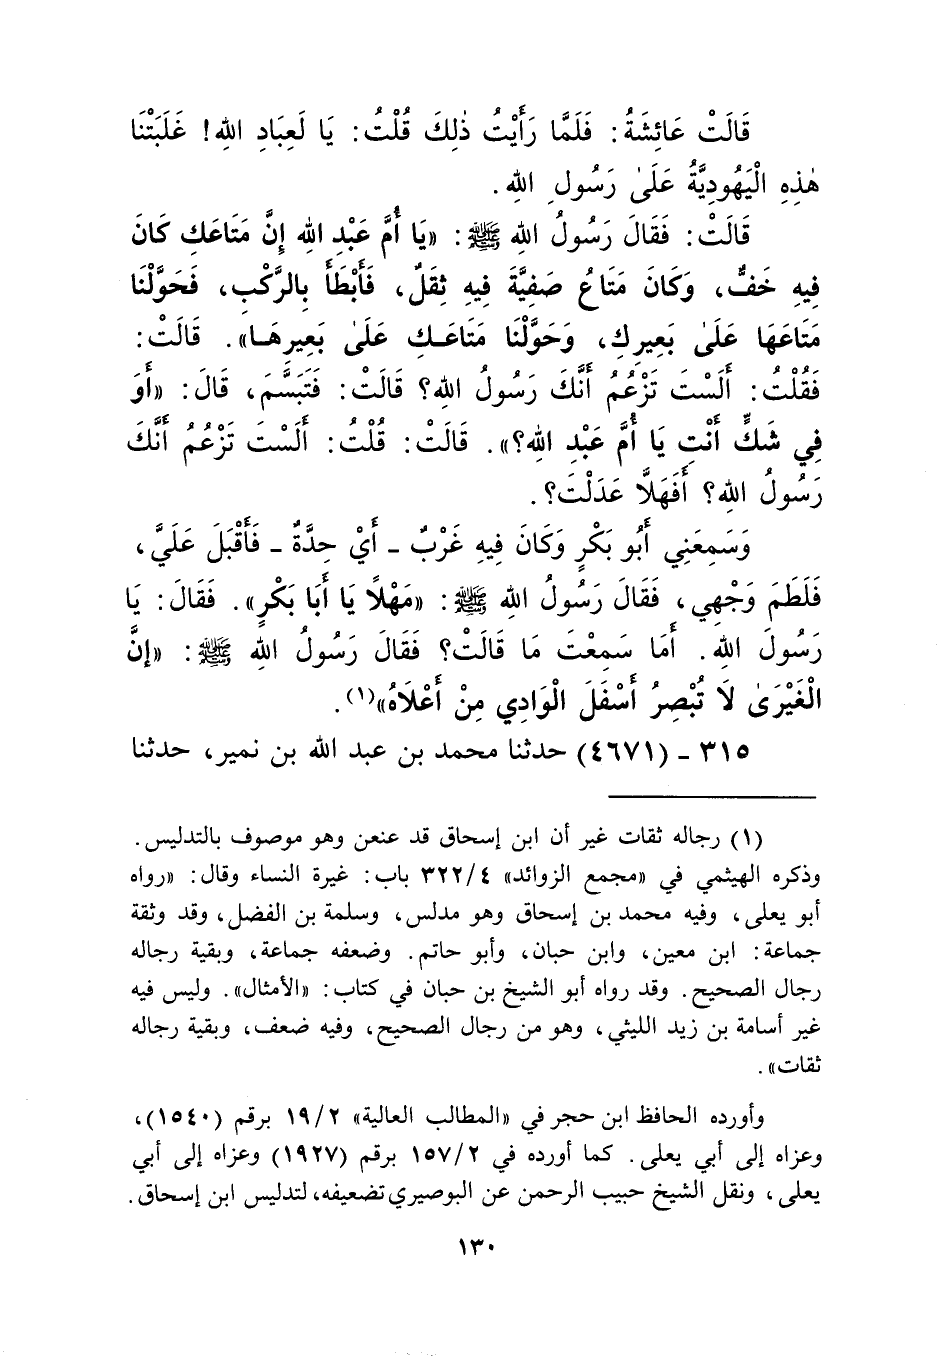 قَالَتْ عَائِشَةُ: فَلَمَّا رَأَيْتُ ذٰلِكَ قُلْتُ: يَا لَعِبَادِ اللهِ! غَلَبَتْنَا
هٰذِهِ الْيَهُودِيَّةُ عَلَىٰ رَسُولِ اللهِ.
قَالَتْ: فَقَالَ رَسُولُ اللهِ ﷺ: «يَا أُمَّ عَبْدِ اللهِ إِنَّ مَتَاعَكِ كَانَ
فِيهِ خَفٌّ، وَكَانَ مَتَاعُ صَفِيَّةَ فِيهِ ثِقَلٌ، فَأَبْطَأَ بِالرَّكْبِ، فَحَوَّلْنَا
مَتَاعَهَا عَلَىٰ بَعِيرِكِ، وَحَوَّلْنَا مَتَاعَـكِ عَلَىٰ بَعِيرِهَـا». قَالَتْ:
فَقُلْتُ: أَلَسْتَ تَزْعُمُ أَنَّكَ رَسُولُ اللهِ؟ قَالَتْ: فَتَبَسَّمَ، قَالَ: «أَوَ
فِي شَكٍّ أَنْتِ يَا أُمَّ عَبْدِ اللهِ؟». قَالَتْ: قُلْتُ: أَلَسْتَ تَزْعُمُ أَنَّكَ
رَسُولُ اللهِ؟ أَفَهَلَّا عَدَلْتَ؟.
وَسَمِعَنِي أَبُو بَكْرٍ وَكَانَ فِيهِ غَرْبٌ ـ أَيْ حِدَّةٌ ـ فَأَقْبَلَ عَلَيَّ،
فَلَطَمَ وَجْهِي، فَقَالَ رَسُولُ اللهِ ﷺ: «مَهْلًا يَا أَبَا بَكْرٍ». فَقَالَ: يَا
رَسُولَ اللهِ. أَمَا سَمِعْتَ مَا قَالَتْ؟ فَقَالَ رَسُولُ اللهِ ﷺ: «إِنَّ
الْغَيْرَىٰ لَا تُبْصِرُ أَسْفَلَ الْوَادِي مِنْ أَعْلَاهُ»(١).
٣١٥ ـ (٤٦٧١) حدثنا محمد بن عبد الله بن نمير، حدثنا
(١) رجاله ثقات غير أن ابن إسحاق قد عنعن وهو موصوف بالتدليس.
وذكره الهيثمي في «مجمع الزوائد» ٣٢٢/٤ باب: غيرة النساء وقال: «رواه
أبو يعلى، وفيه محمد بن إسحاق وهو مدلس، وسلمة بن الفضل، وقد وثقة
جماعة: ابن معين، وابن حبان، وأبو حاتم. وضعفه جماعة، وبقية رجاله
رجال الصحيح. وقد رواه أبو الشيخ بن حبان في كتاب: «الأمثال». وليس فيه
غير أسامة بن زيد الليثي، وهو من رجال الصحيح، وفيه ضعف، وبقية رجاله
ثقات».
وأورده الحافظ ابن حجر في «المطالب العالية» ١٩/٢ برقم (١٥٤٠)،
وعزاه إلى أبي يعلى. كما أورده في ١٥٧/٢ برقم (١٩٢٧) وعزاه إلى أبي
يعلى، ونقل الشيخ حبيب الرحمن عن البوصيري تضعيفه، لتدليس ابن إسحاق.
١٣٠